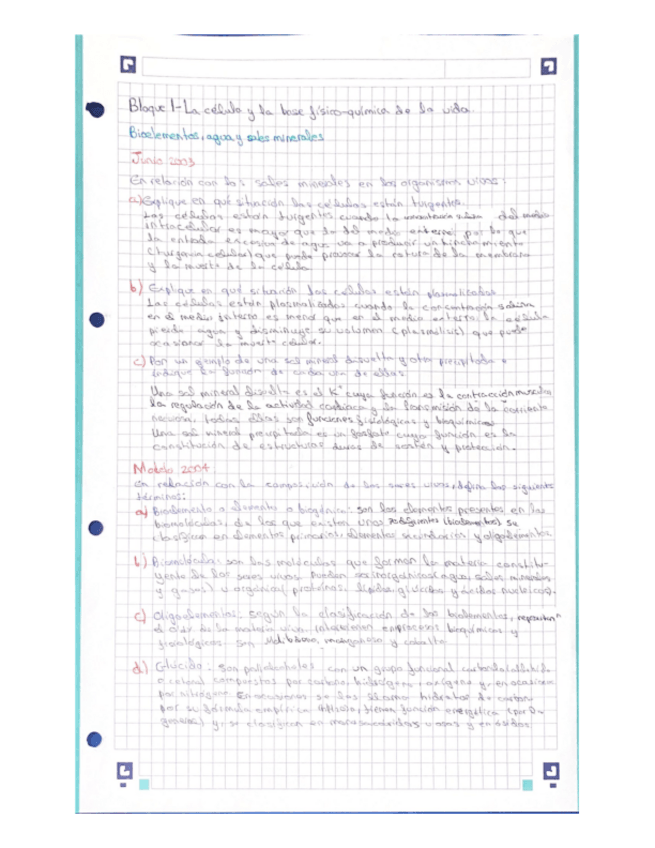 Bloque 1- La célula y la base físico-química de la vida.
Bioelementos, agua y sales minerales
Junio 2003
En relación con las sales minerales en los organismos vivos:
a) Explique en qué situación las células están turgentes.
Las células están turgentes cuando la concentración salina del medio
intracelular es mayor que la del medio externo, por lo que
la entrada excesiva de agua va a producir un hinchamiento
(turgencia celular) que puede provocar la rotura de la membrana
y la muerte de la célula
b) Explique en qué situación las células están plasmolizadas
Las células están plasmolizadas cuando la concentración salina
en el medio interno es menor que en el medio externo, la célula
pierde agua y disminuye su volumen (plasmólisis), que puede
ocasionar la muerte celular.
c) Pon un ejemplo de una sal mineral disuelta y otra precipitada e
indique la función de cada una de ellas
Una sal mineral disuelta es el K⁺ cuya función es la contracción muscular,
la regulación de la actividad cardíaca y la transmisión de la corriente
nerviosa, todas ellas son funciones fisiológicas y bioquímicas
Una sal mineral precipitada es un fosfato cuya función es la
constitución de estructuras duras de sostén y protección.
Modelo 2004
En relación con la composición de los seres vivos, defina los siguientes
términos:
a) Bioelemento o elemento biogénico: son los elementos presentes en las
biomoléculas, de los que existen unos (bioelementos) se
clasifican en elementos primarios, elementos secundarios y oligoelementos.
b) Biomolécula: son las moléculas que forman la materia constitu-
yente de los seres vivos. Pueden ser inorgánicas (agua, sales minerales
y gases) u orgánicas (proteínas, lípidos, glúcidos y ácidos nucleicos).
c) Oligoelementos: según la clasificación de los bioelementos, representan
el de la materia viva, intervienen en procesos bioquímicos y
fisiológicos. Son Molibdeno, manganeso y cobalto
d) Glúcido: Son polialcoholes con un grupo funcional carbonilo (aldehído
o cetona) compuestos por carbono, hidrógeno, oxígeno y, en ocasiones
por nitrógeno. En ocasiones se les llama hidratos de carbono
por su fórmula empírica, tienen función energética (por lo
general) y, se clasifican en monosacáridos u osas y en ósidos.